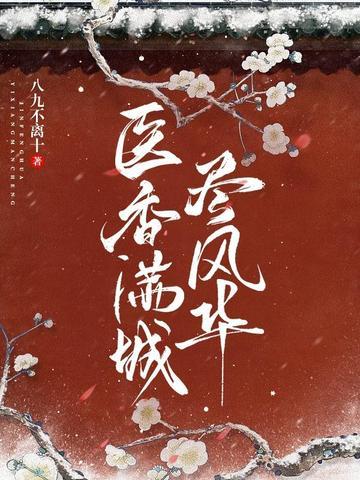 八九不离十 著
JINFENGHUA
YIXIANGMANCHENG
医香满城
尽风华